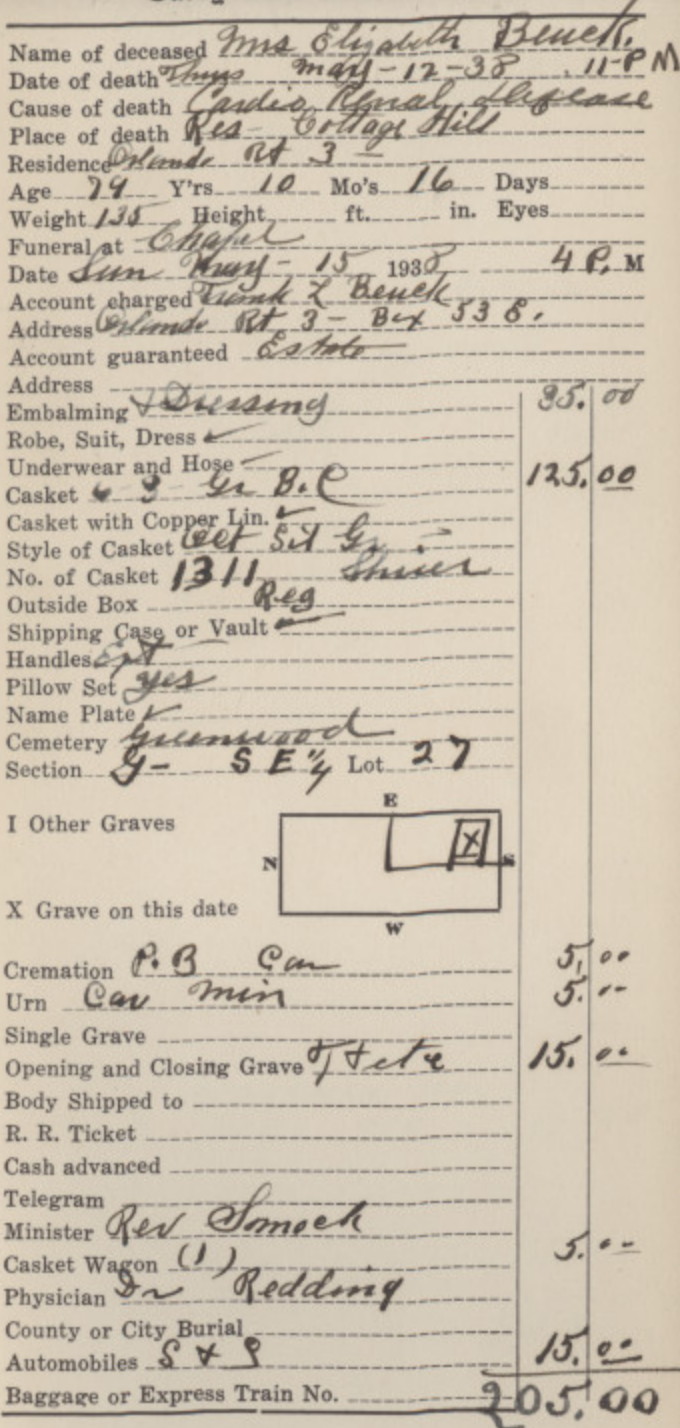 Name of deceased Mrs Elizabeth Beuck.
Date of death Thurs May-12-38 11-P M
Cause of death Cardio Renal disease
Place of death Res- Cottage Hill
Residence Orlando Rt 3 -
Age 79 Y'rs 10 Mo's 16 Days
Weight 135 Height ft. in. Eyes
Funeral at Chapel
Date Sun May-15 1938 4 P. M
Account charged Frank L Beuck
Address Orlando Rt 3- Box 53 B.
Account guaranteed Estate
Address
Embalming & Dressing 35.00
Robe, Suit, Dress
Underwear and Hose
Casket 6 3 Gr B.C 125.00
Casket with Copper Lin.
Style of Casket Oct Sil Gr
No. of Casket 1311
Outside Box Reg
Shipping Case or Vault
Handles Ext
Pillow Set yes
Name Plate
Cemetery Greenwood
Section G- S E 1/4 Lot 27
E
I Other Graves
N X S
X Grave on this date
W
Cremation P.B Car 5.00
Urn Car Min 5.00
Single Grave
Opening and Closing Grave 15.00
Body Shipped to
R. R. Ticket
Cash advanced
Telegram
Minister Rev Smock
Casket Wagon (1) 5.00
Physician Dr Redding
County or City Burial
Automobiles S & S 15.00
Baggage or Express Train No. 205.00